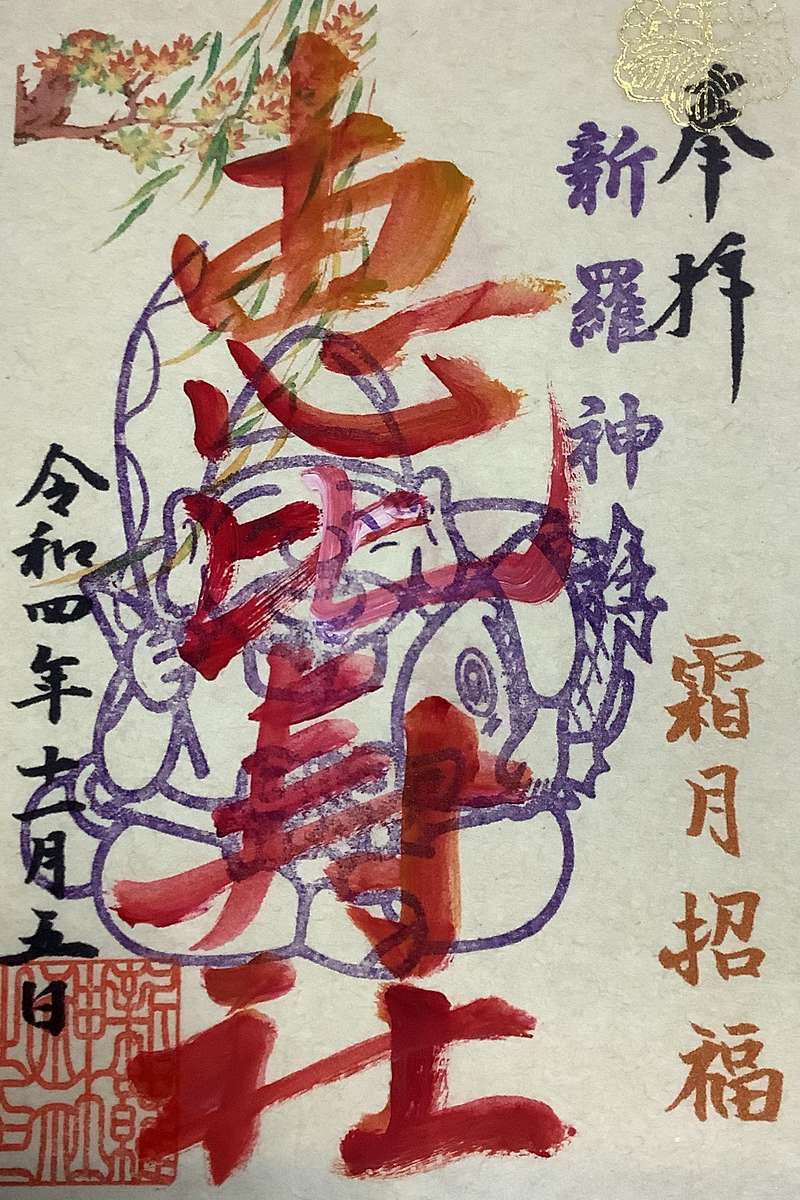 奉拝
新羅神社
霜月招福
恵比寿社
令和四年十一月五日